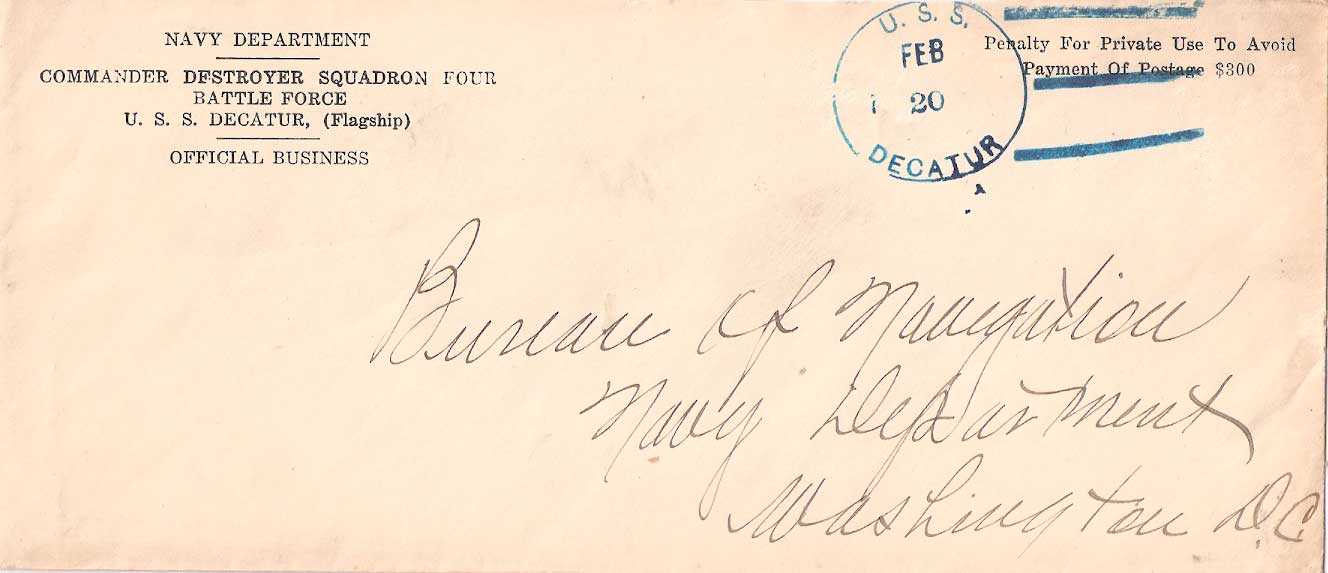 NAVY DEPARTMENT
COMMANDER DESTROYER SQUADRON FOUR
BATTLE FORCE
U. S. S. DECATUR, (Flagship)
OFFICIAL BUSINESS
U. S. S.
FEB
20
DECATUR
Penalty For Private Use To Avoid
Payment Of Postage $300
Bureau of Navigation
Navy Department
Washington D.C.